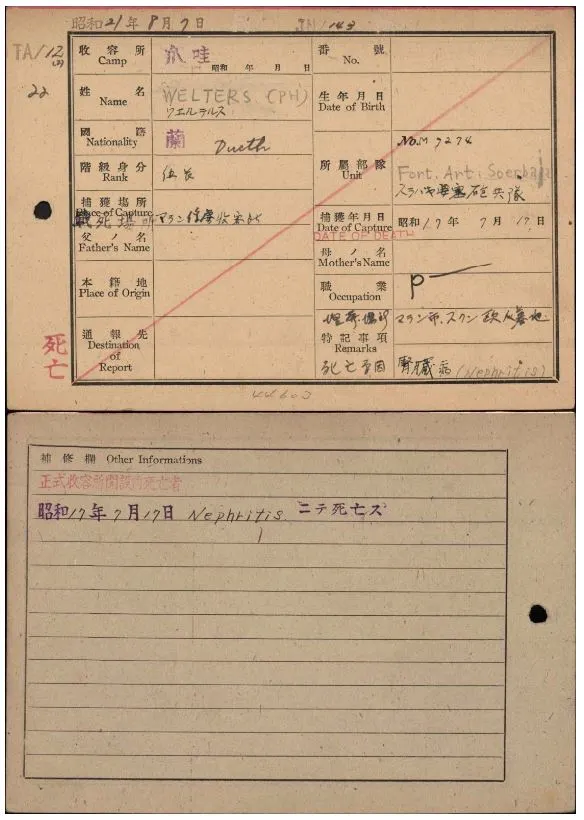 昭和21年8月7日
JA/143
TA/12
22
收容所 Camp 爪哇 昭和 年 月 日
番號 No.
姓名 Name WELTERS (PH)
ウエルテルス
生年月日 Date of Birth
國籍 Nationality 蘭 Dueth
No.M 9274
階級身分 Rank 伍長
所屬部隊 Unit Fort. Art. Soerbaja
スラバヤ要塞砲兵隊
捕獲場所 Place of Capture
戰死場所 マラン 收容所
捕獲年月日 Date of Capture 昭和17年 7月17日
DATE OF DEATH
父ノ名 Father's Name
母ノ名 Mother's Name
本籍地 Place of Origin
職業 Occupation P
埋葬場所 マラン市.スクン 欧人墓地
通報先 Destination of Report
特記事項 Remarks
死亡
死亡原因 腎臓病 (Nephritis)
44603
補修欄 Other Informations
正式收容所開設前死亡者
昭和17年7月17日 Nephritis ニテ死亡ス